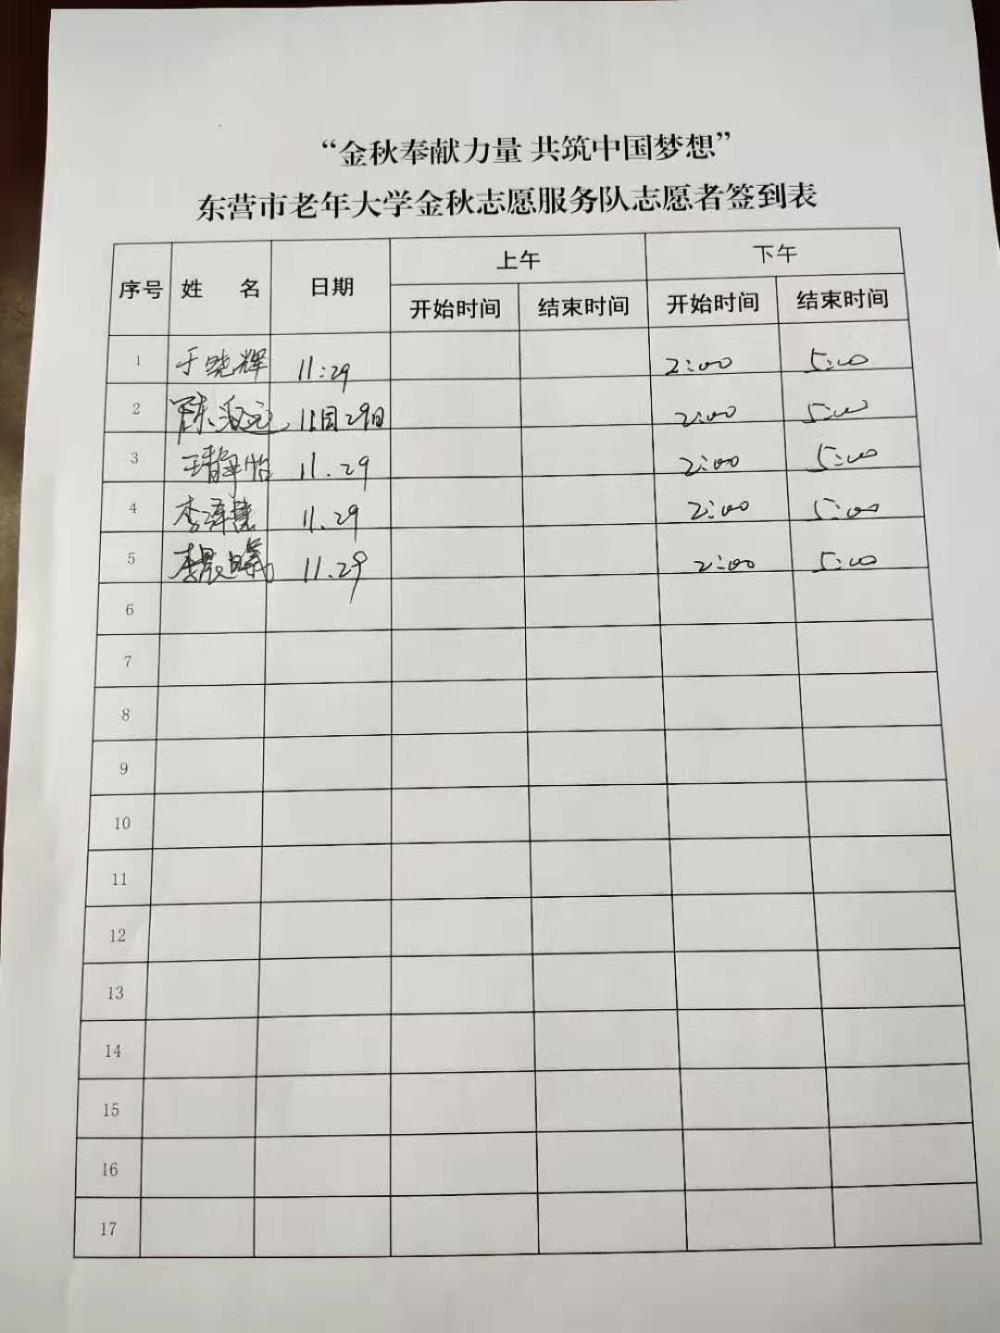 “金秋奉献力量 共筑中国梦想”
东营市老年大学金秋志愿服务队志愿者签到表
序号 姓 名 日期 上午 下午
开始时间 结束时间 开始时间 结束时间
1 于晓辉 11:29 2:00 5:00
2 陈 11月29日 2:00 5:00
3 王静怡 11.29 2:00 5:00
4 李泽慧 11.29 2:00 5:00
5 李晨曦 11.29 2:00 5:00
6
7
8
9
10
11
12
13
14
15
16
17